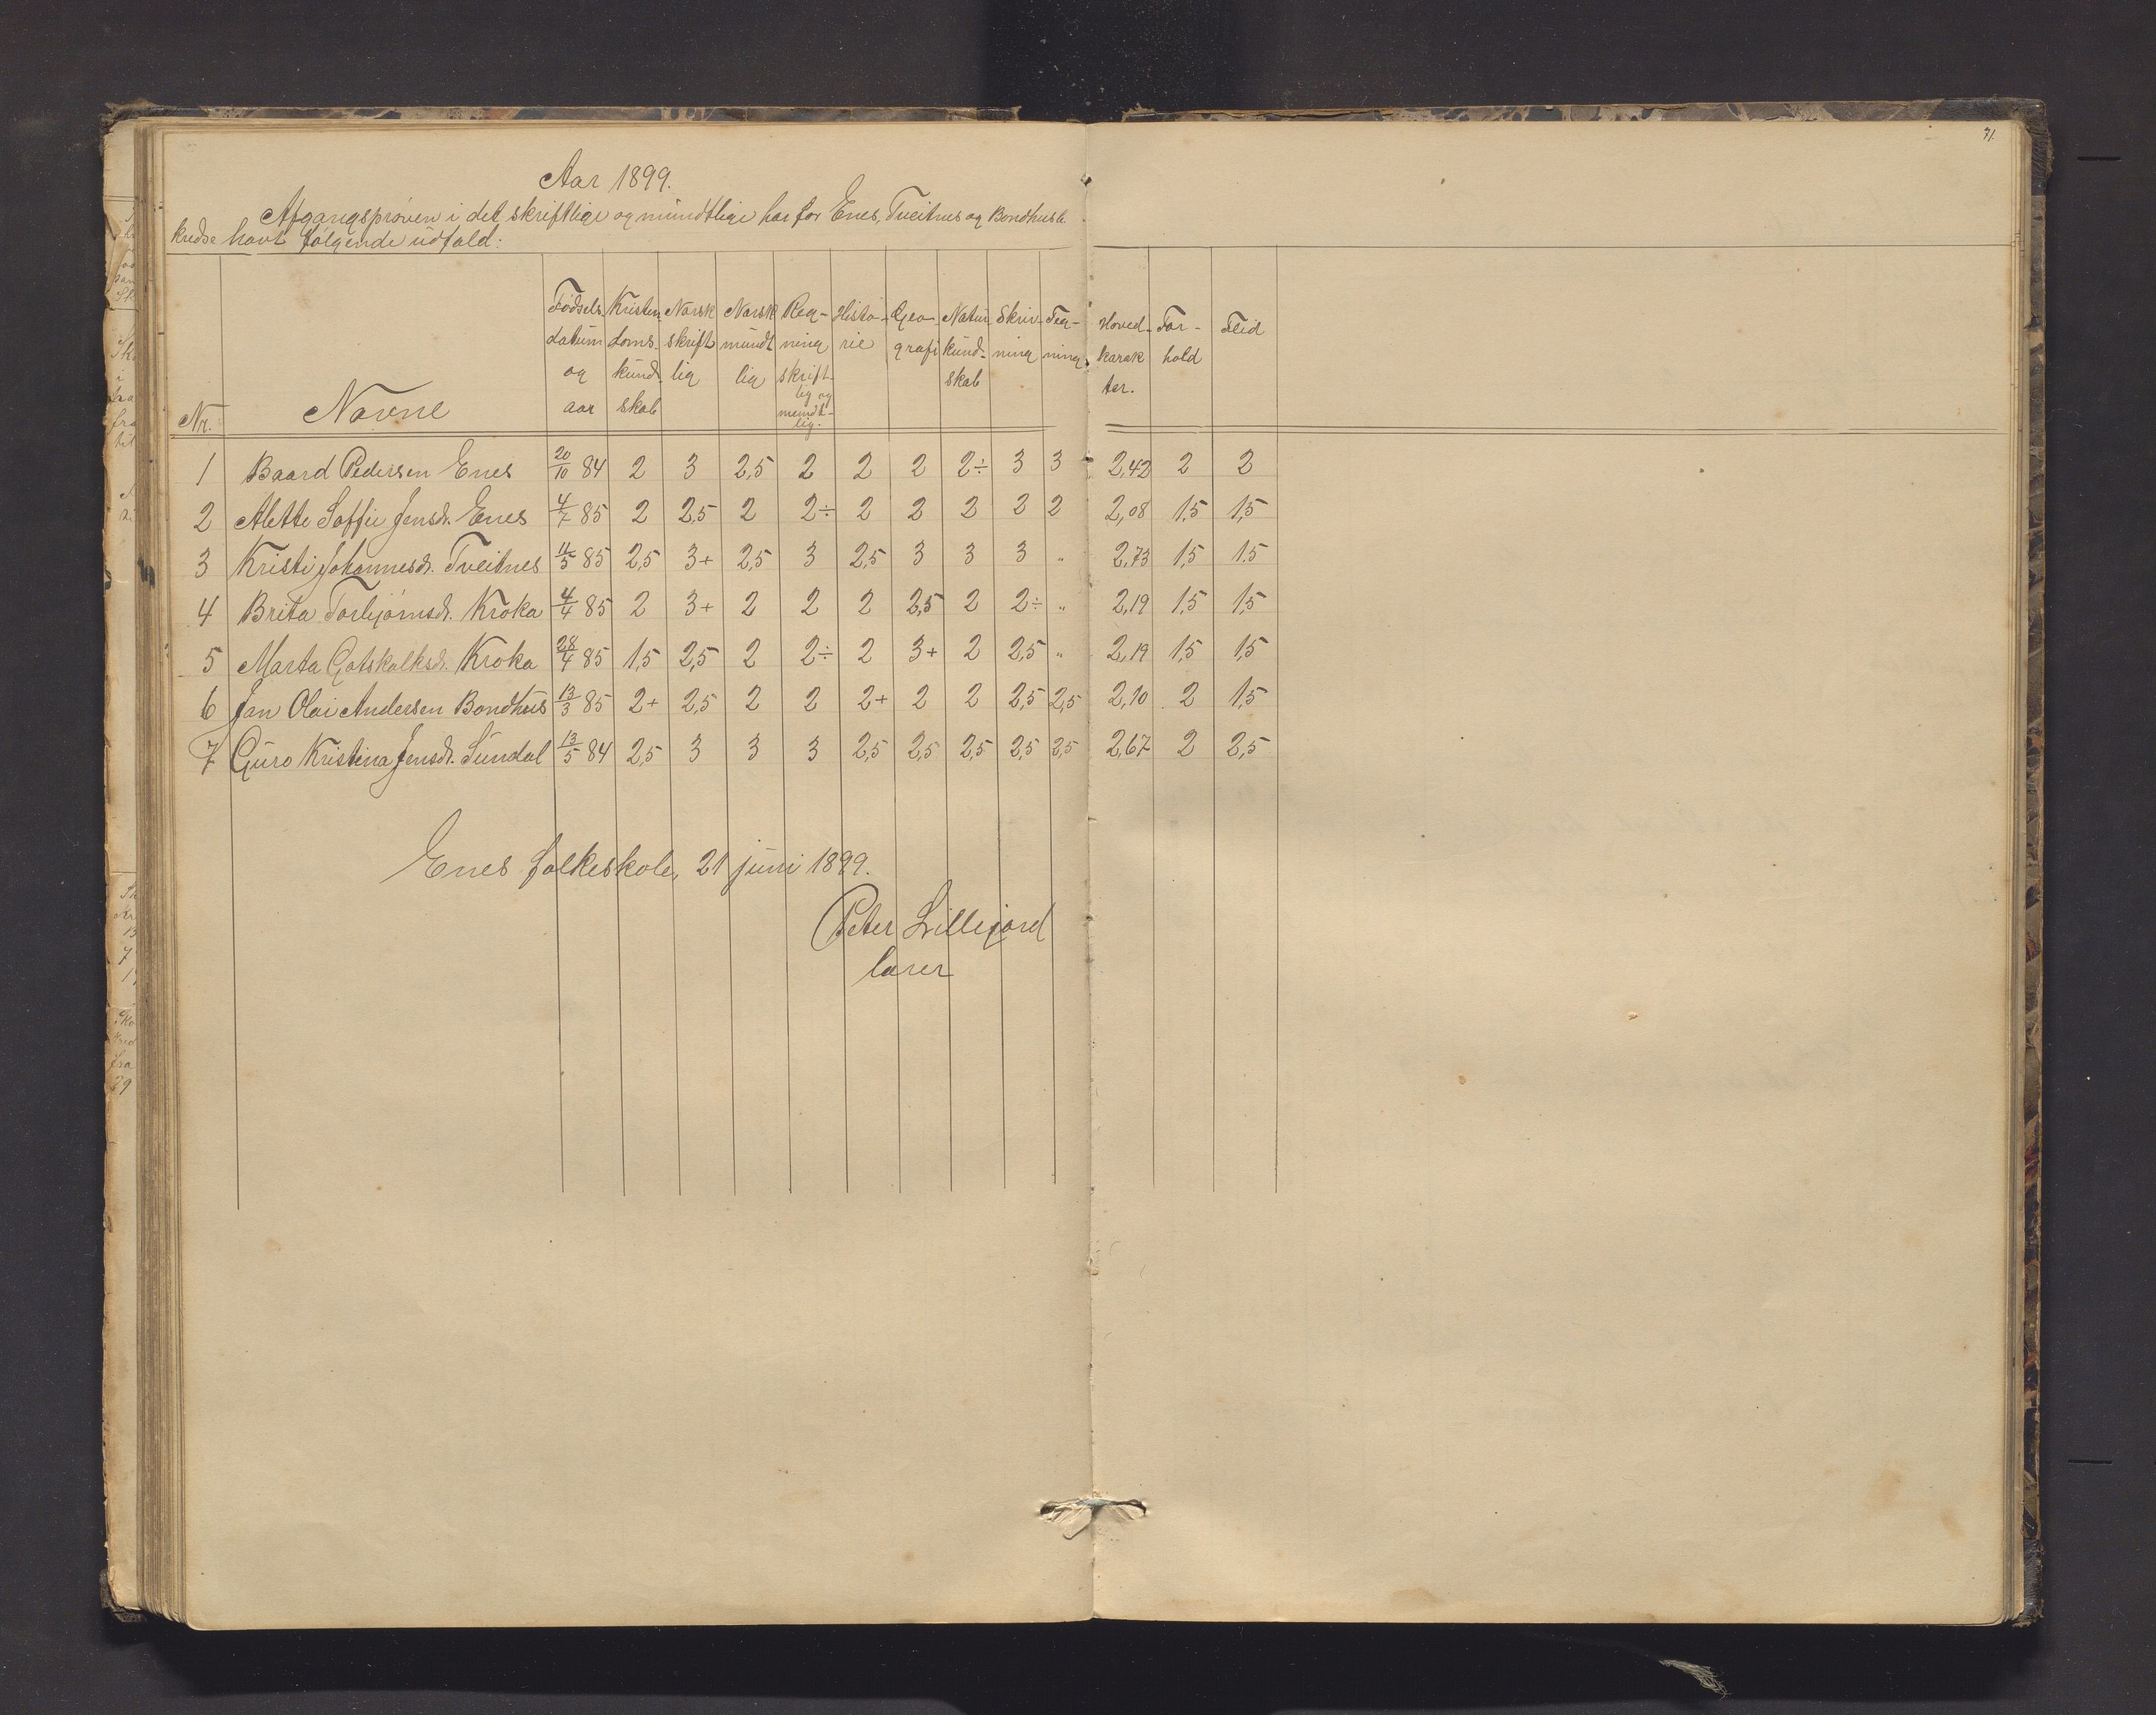 71.
Aar 1899.
Afgangsprøven i det skriftlige og mundtlige har for Enes, Tveitnes og Bondhus
kredse havt følgende udfald:
Nr. Navne Fødsels datum og aar Kristen doms kund skab Norsk skrift lig Norsk mundt lig Reg- ning skrift- lig og mundt- lig. Histo- rie Geo- grafi Natur kund- skab Skriv- ning Teg- ning Hoved- karak ter. For- hold Flid
1 Baard Pedersen Enes 20/10 84 2 3 2,5 2 2 2 2÷ 3 3 2,42 2 2
2 Alette Soffie Jensd. Enes 4/7 85 2 2,5 2 2÷ 2 2 2 2 2 2,08 1,5 1,5
3 Kristi Johannesd. Tveitnes 11/5 85 2,5 3+ 2,5 3 2,5 3 3 3 „ 2,73 1,5 1.5
4 Brita Torbjørnsd. Kroka 4/4 85 2 3+ 2 2 2 2,5 2 2÷ „ 2,19 1,5 1,5
5 Marta Gotskalksd. Kroka 28/4 85 1,5 2,5 2 2÷ 2 3+ 2 2,5 „ 2,19 1,5 1,5
6 Jan Olai Andersen Bondhus 13/3 85 2+ 2,5 2 2 2+ 2 2 2,5 2,5 2,10 2 1,5
7 Guro Kristina Jensd. Sundal 13/5 84 2,5 3 3 3 2,5 2,5 2,5 2,5 2,5 2,67 2 2,5
Enes folkeskole, 21 juni 1899.
Peter Lillejord
lærer